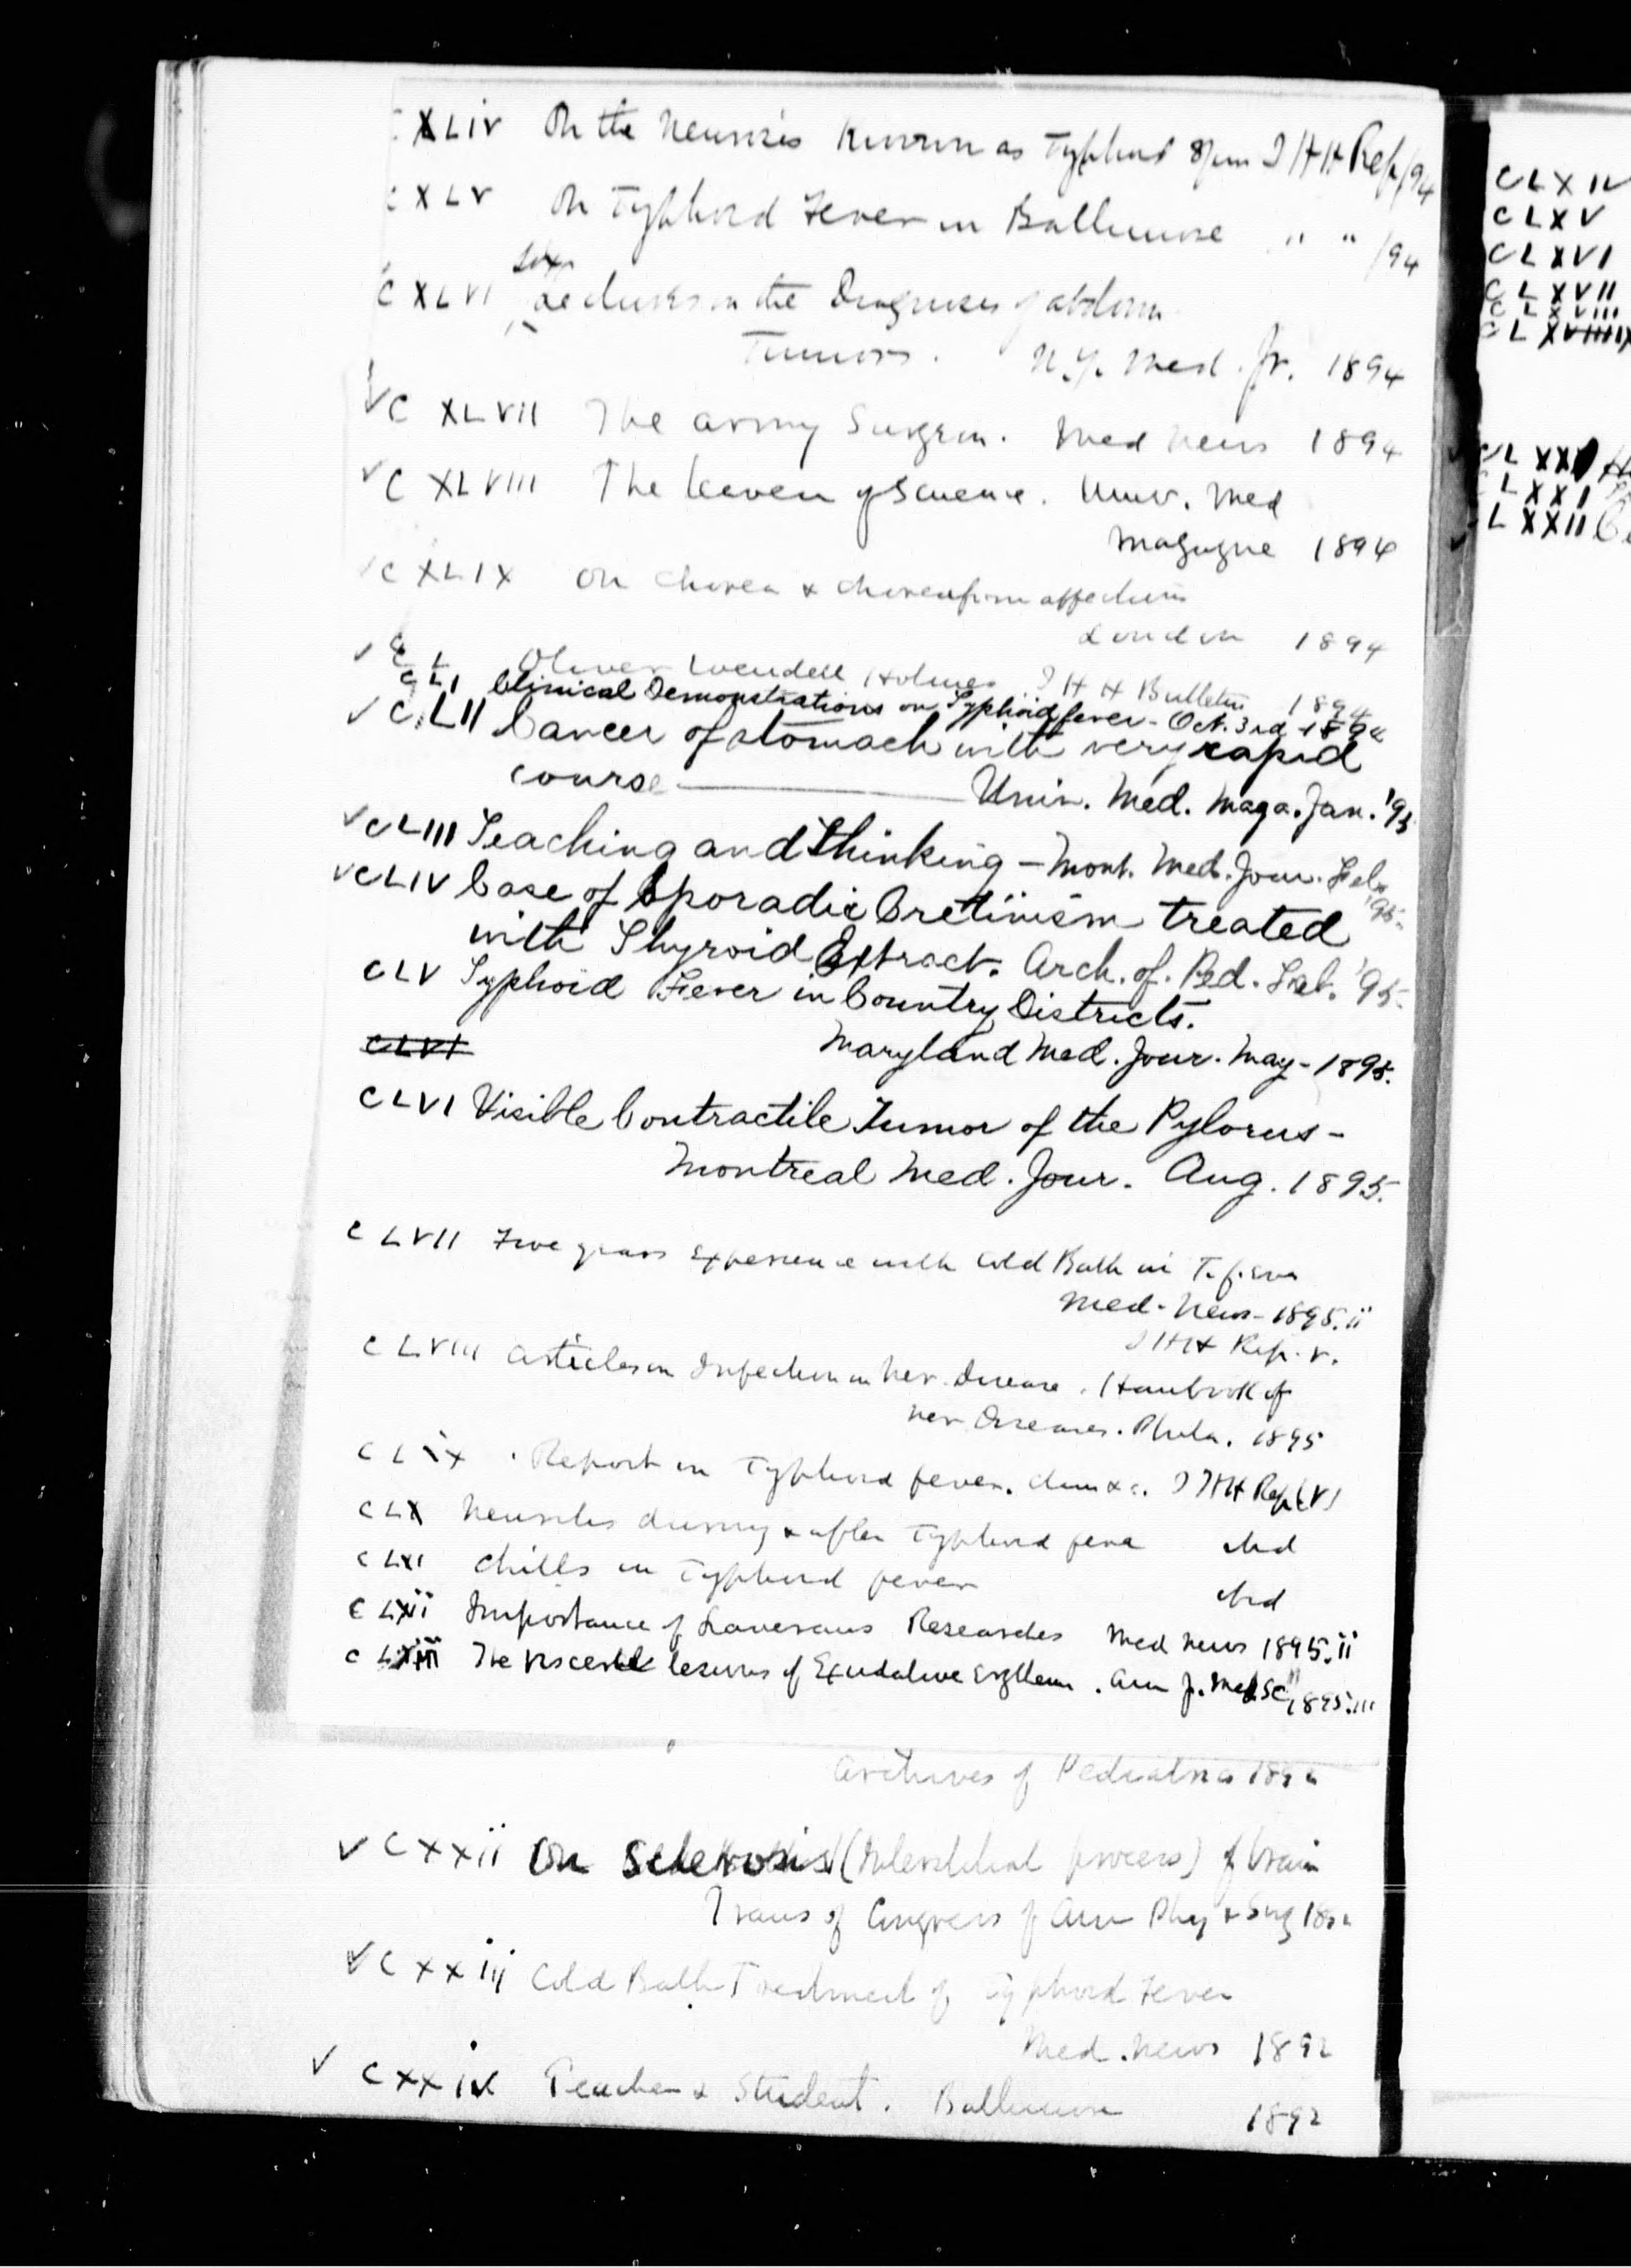 CXLIV On the Neurosis known as Typhoid Spine J H H Rep /94
CXLV On Typhoid Fever in Baltimore " " /94
six
CXLVI Lectures on the Diagnosis of abdom
Tumors. N.Y. Med. Jr. 1894
✓ C XLVII The Army Surgeon. Med News 1894
✓ C XLVIII The leaven of Science. Univ. Med
Magazine 1894
✓ C XLIX On Chorea & choreaform affections
London 1894
✓ C L Oliver Wendell Holmes J H H Bulletin 1894
C LI Clinical Demonstrations on Typhoid fever - Oct. 3rd 1894
✓ C.LII Cancer of stomach with very rapid
course Univ. Med. Maga. Jan. '95
✓ CLIII Teaching and Thinking - Mont. Med. Jour. Feb. '95.
✓ CLIV Case of Sporadic Cretinism treated
with Thyroid Extract. Arch. of. Ped. Feb. '95.
CLV Typhoid Fever in Country Districts.
CLVI Maryland Med. Jour. May - 1895.
CLVI Visible Contractile Tumor of the Pylorus -
Montreal Med. Jour. Aug. 1895.
C LVII Five years Experience with Cold Bath in T. fever
Med. News - 1895. ii
J H H Rep. V.
C LVIII Articles on Infection in Ner. Disease. Handbook of
Ner Diseases. Phila. 1895
C LIX Report on Typhoid fever. J H H Rep (V)
C LX Neuritis during & after Typhoid fever ibid
C LXI Chills in Typhoid fever ibid
C LXii Importance of Laverans Researches Med News 1895. ii
C LXiii The Visceral lesions of Exudative Erythem. Am J. Med Sc 1895. iii
Archives of Pediatrics 1892
✓ C XXii On Sclerosis (Interstitial process) of brain
Trans of Congress of Am Phy & Surg 1892
✓ C XX iij Cold Bath Treatment of Typhoid Fever
Med. News 1892
✓ C XX iv Teacher & Student. Baltimore 1892
CLXIV
CLXV
CLXVI
CLXVII
CLXVIII
CLXXI
LXXII